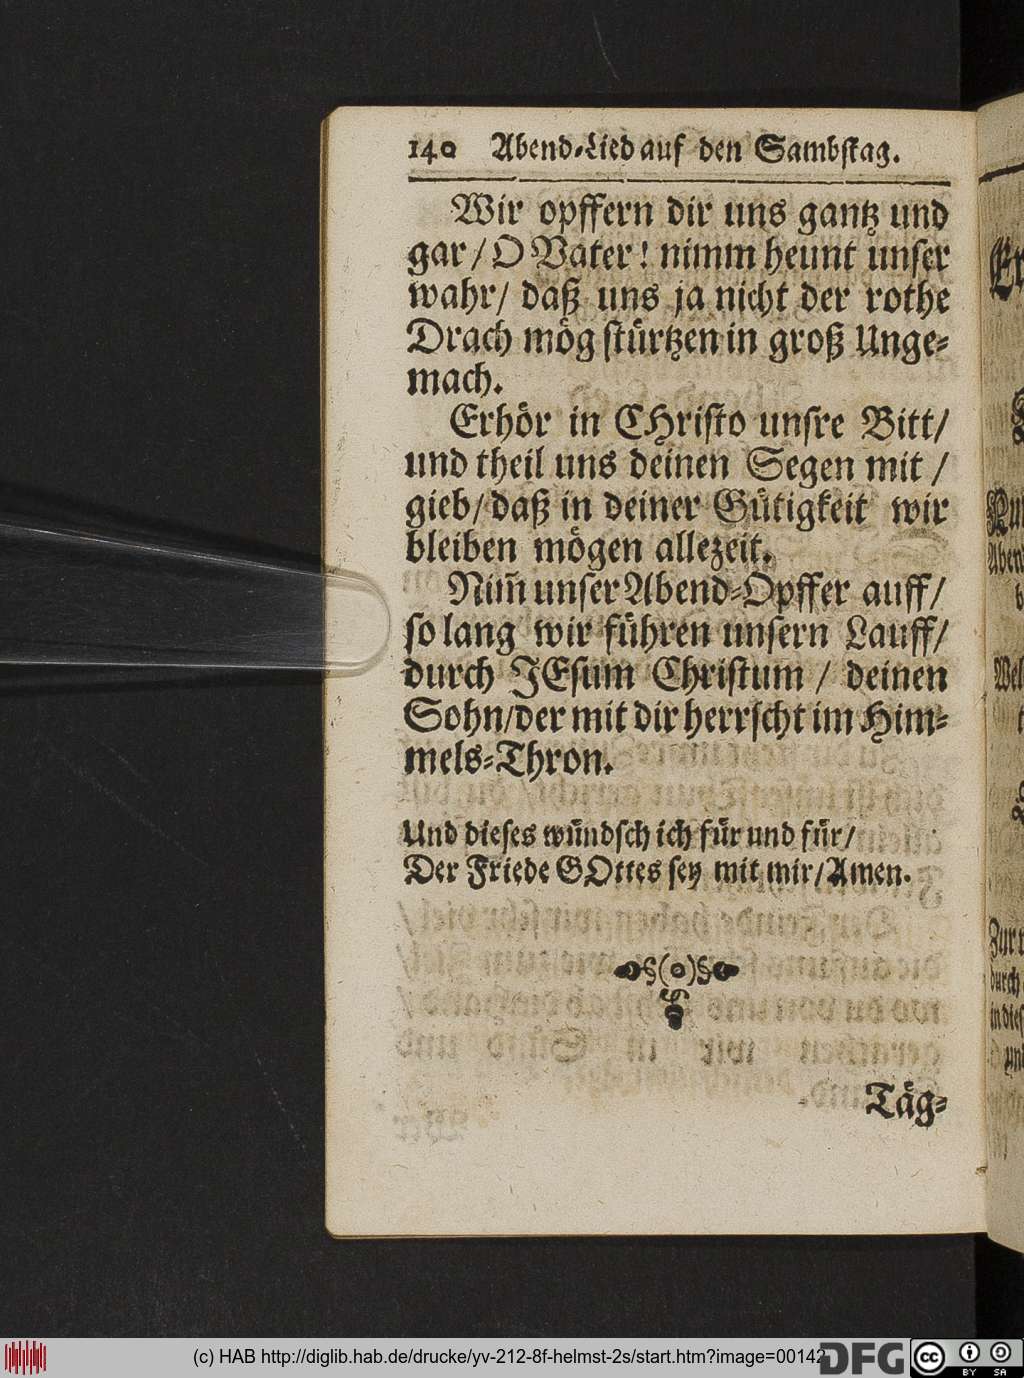 140 Abend-Lied auf den Sambstag.
Wir opffern dir uns gantz und
gar / O Vater! nimm heunt unser
wahr / daß uns ja nicht der rothe
Drach mög stürtzen in groß Unge-
mach.
Erhör in CHristo unsre Bitt /
und theil uns deinen Segen mit /
gieb / daß in deiner Gütigkeit wir
bleiben mögen allezeit.
Nim̃ unser Abend-Opffer auff /
so lang wir führen unsern Lauff /
durch JEsum Christum / deinen
Sohn / der mit dir herrscht im Him-
mels-Thron.
Und dieses wündsch ich für und für /
Der Friede GOttes sey mit mir / Amen.
Täg-
(c) HAB http://diglib.hab.de/drucke/yv-212-8f-helmst-2s/start.htm?image=00142
DFG
cc BY SA